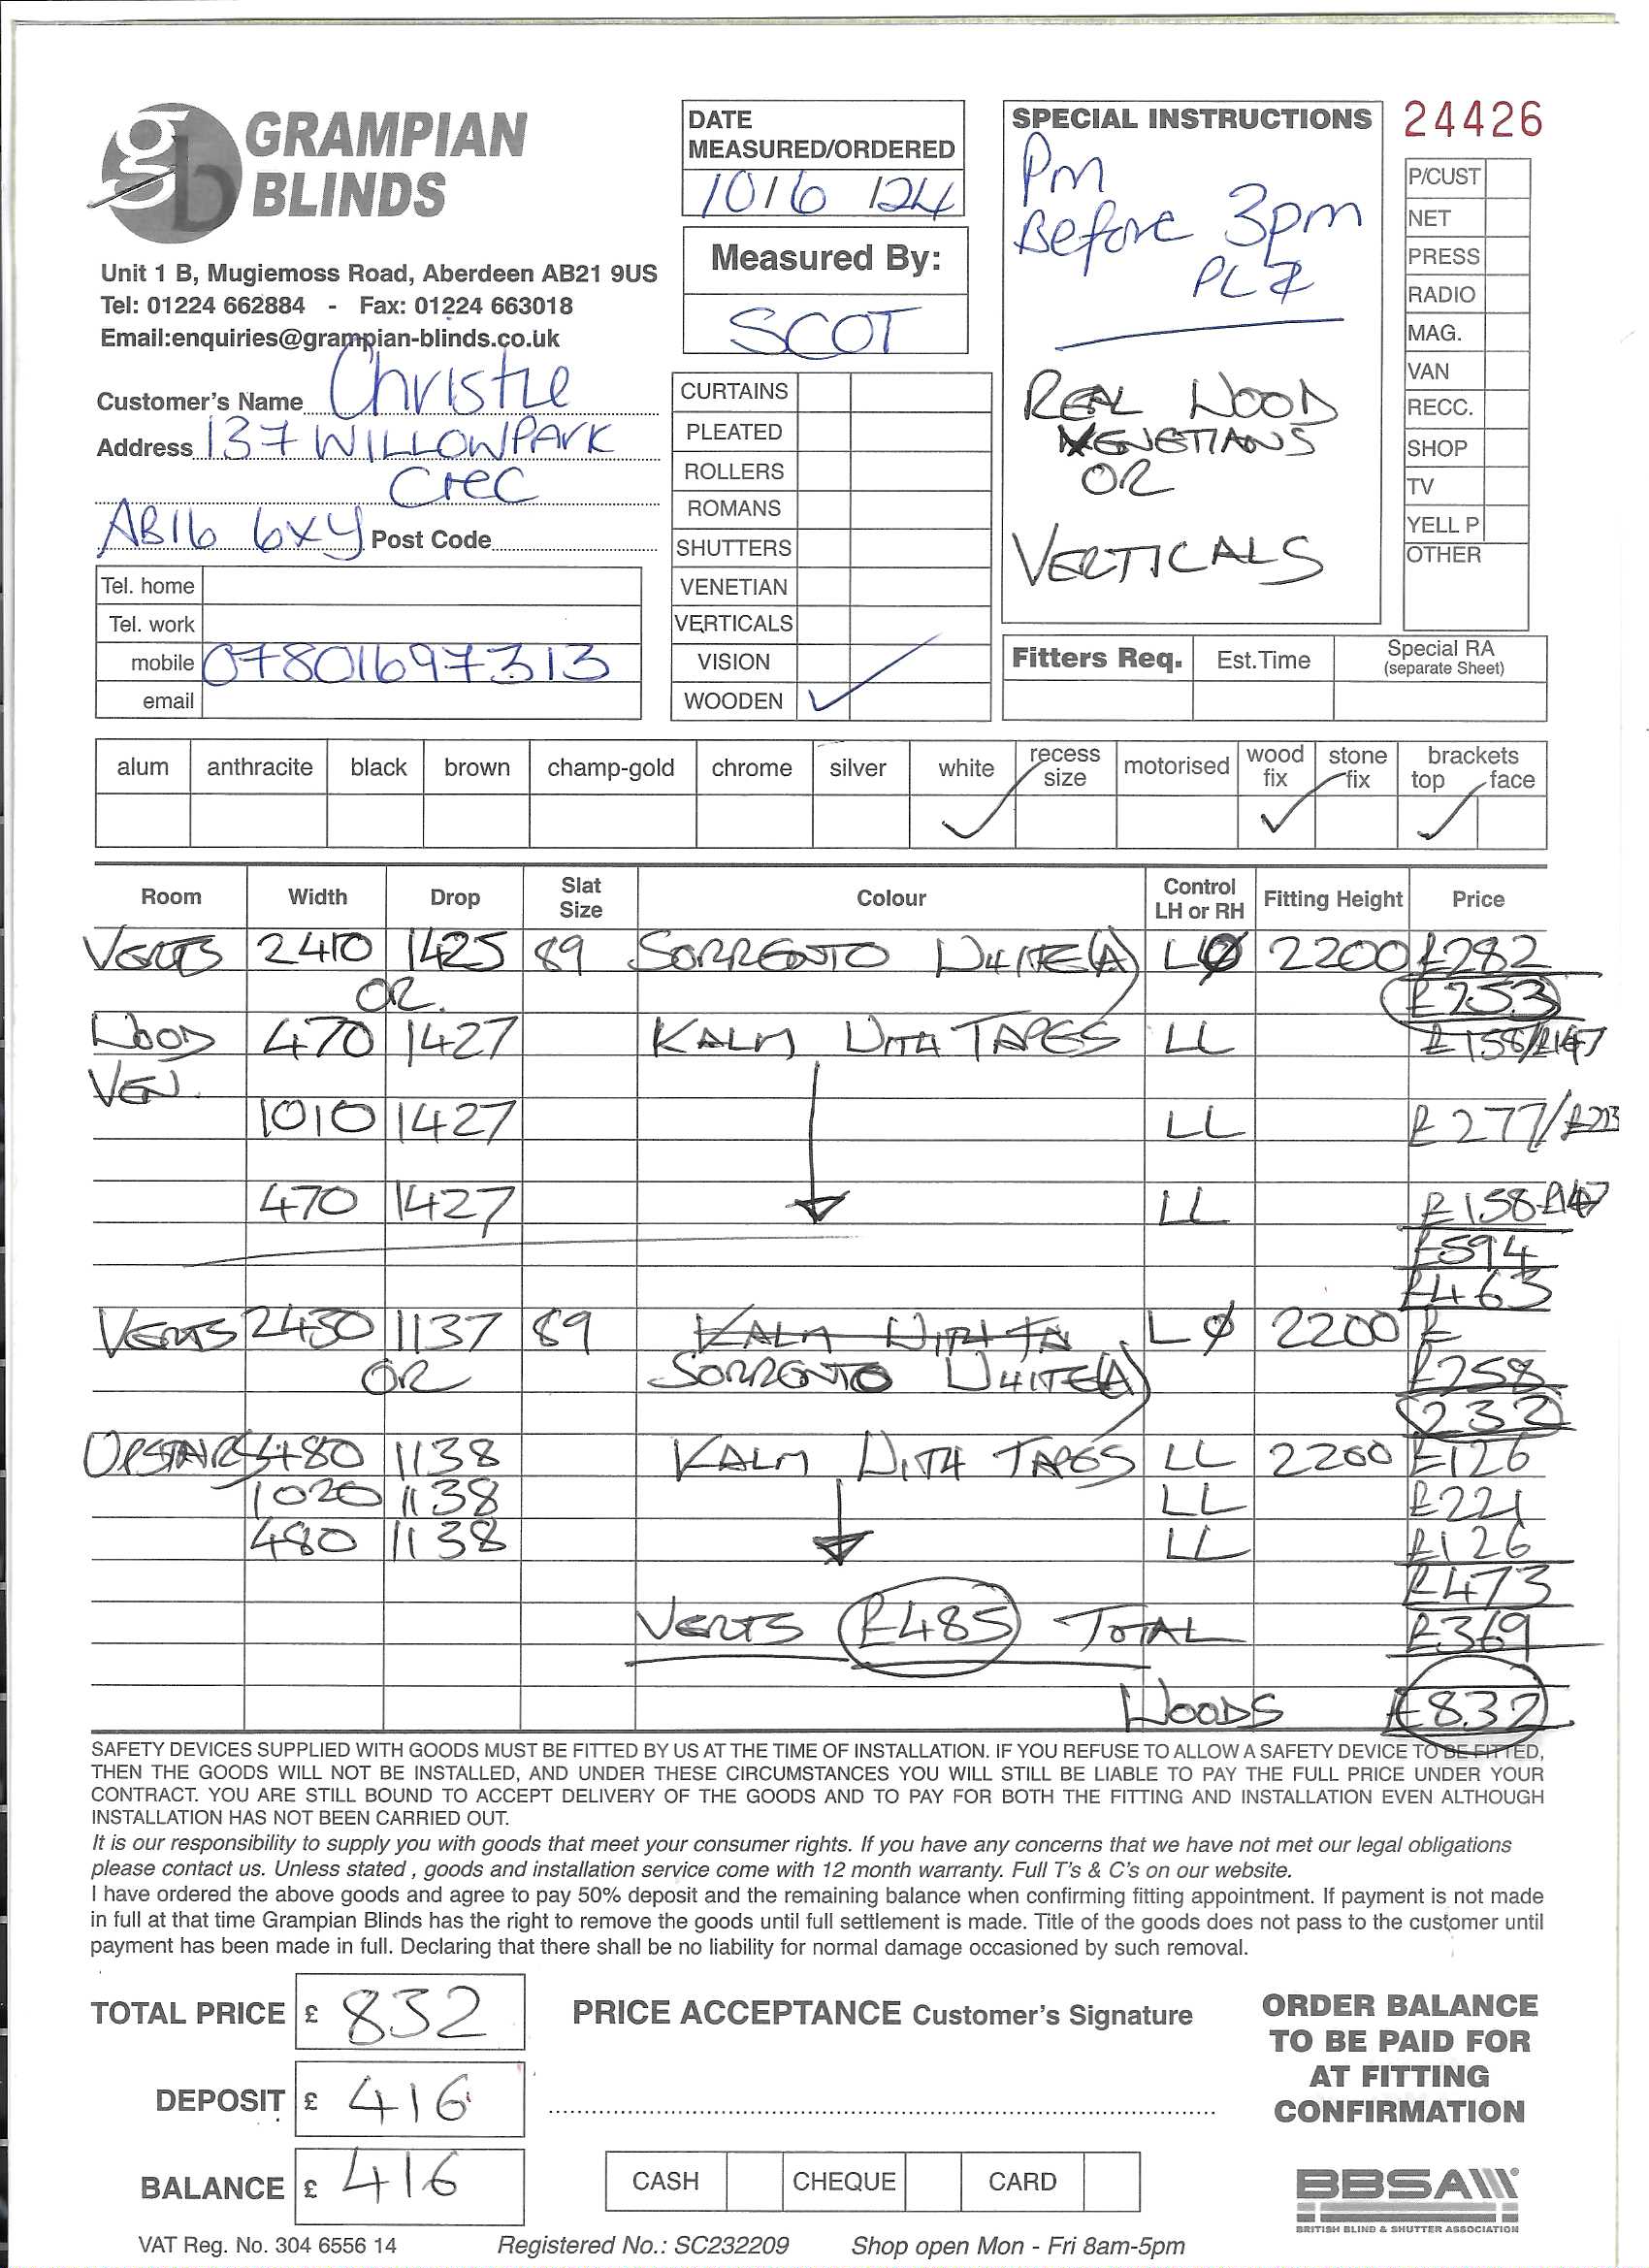 GRAMPIAN
BLINDS
Unit 1 B, Mugiemoss Road, Aberdeen AB21 9US
Tel: 01224 662884 - Fax: 01224 663018
Email:enquiries@grampian-blinds.co.uk
DATE
MEASURED/ORDERED
10/6/24
Measured By:
SCOT
SPECIAL INSTRUCTIONS
Pm
Before 3pm
PLZ
REAL WOOD
VENETIANS
OR
VERTICALS
24426
P/CUST
NET
PRESS
RADIO
MAG.
VAN
RECC.
SHOP
TV
YELL P
OTHER
Customer's Name Christie
Address 137 WILLOWPARK
Crec
AB16 6XY Post Code
Tel. home
Tel. work
mobile 07801697313
email
CURTAINS
PLEATED
ROLLERS
ROMANS
SHUTTERS
VENETIAN
VERTICALS
VISION
WOODEN ✓
Fitters Req. Est.Time Special RA
(separate Sheet)
alum anthracite black brown champ-gold chrome silver white recess size motorised wood fix stone fix brackets top face
✓ ✓ ✓
Room Width Drop Slat Size Colour Control LH or RH Fitting Height Price
VERTS 2410 1425 89 SORRENTO WHITE(A) LØ 2200 £282
OR. £253
WOOD 470 1427 KALM WITH TAPES LL £158/£147
VEN.
1010 1427 LL £277/
470 1427 LL £158-£147
£594
£463
VERTS 2430 1137 89 KALM WITH TA LØ 2200 £
OR SORRENTO WHITE(A) £258
232
UPSTAIRS 480 1138 KALM WITH TAPES LL 2200 £126
1020 1138 LL £221
480 1138 LL £126
£473
VERTS £485 TOTAL £369
WOODS £832
SAFETY DEVICES SUPPLIED WITH GOODS MUST BE FITTED BY US AT THE TIME OF INSTALLATION. IF YOU REFUSE TO ALLOW A SAFETY DEVICE TO BE FITTED,
THEN THE GOODS WILL NOT BE INSTALLED, AND UNDER THESE CIRCUMSTANCES YOU WILL STILL BE LIABLE TO PAY THE FULL PRICE UNDER YOUR
CONTRACT. YOU ARE STILL BOUND TO ACCEPT DELIVERY OF THE GOODS AND TO PAY FOR BOTH THE FITTING AND INSTALLATION EVEN ALTHOUGH
INSTALLATION HAS NOT BEEN CARRIED OUT.
It is our responsibility to supply you with goods that meet your consumer rights. If you have any concerns that we have not met our legal obligations
please contact us. Unless stated , goods and installation service come with 12 month warranty. Full T's & C's on our website.
I have ordered the above goods and agree to pay 50% deposit and the remaining balance when confirming fitting appointment. If payment is not made
in full at that time Grampian Blinds has the right to remove the goods until full settlement is made. Title of the goods does not pass to the customer until
payment has been made in full. Declaring that there shall be no liability for normal damage occasioned by such removal.
TOTAL PRICE £ 832
DEPOSIT £ 416
BALANCE £ 416
PRICE ACCEPTANCE Customer's Signature
CASH CHEQUE CARD
ORDER BALANCE
TO BE PAID FOR
AT FITTING
CONFIRMATION
BBSA
BRITISH BLIND & SHUTTER ASSOCIATION
VAT Reg. No. 304 6556 14 Registered No.: SC232209 Shop open Mon - Fri 8am-5pm